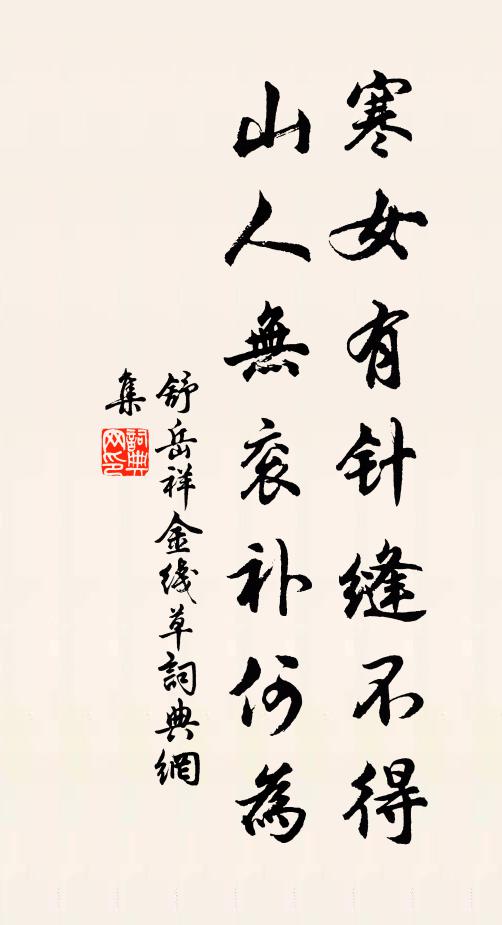 寒女有针缝不得
山人無衮补何為
舒岳祥金线草詞典網
集
詞典网印